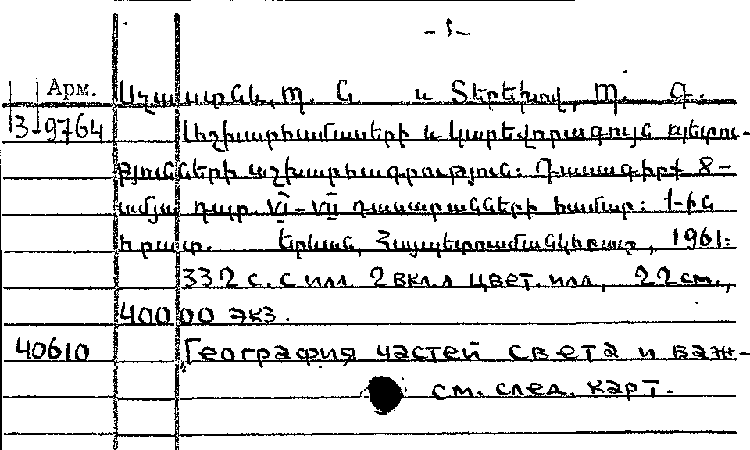 - 1 -
Арм.
Աշխատրնև, Պ. Ն. և Տերեխով, Պ. Գ.
3-9764 Աշխարհամասերի և կարևորագույն պետու-
թյունների աշխարհագրություն: Դասագիրք 8-
ամյա դպր. VI-VII դասարանների համար: 1-ին
հրատ. Երևան, Հայպետուսմանկհրատ, 1961:
332 с. с илл. 2 вкл. л цвет. илл, 22 см.,
40000 экз.
40610 География частей света и важ-
см. след. карт.